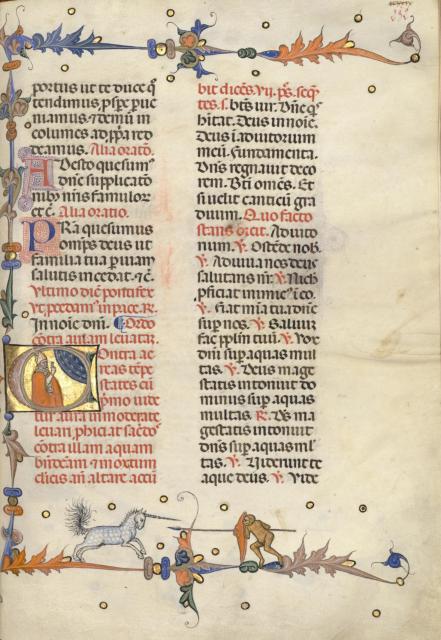 portus ut te duce q̄
tendimus, psp̄e ꝑue
niamus, ⁊ demum in
columes ad pp̄a red
deamus. Alia oratō.
Adesto quesum⁹
dn̄e supplicatō
nibꝫ nr̄is famulor
etc̄. Alia oratio.
Pra quesumus
omps̄ deus ut
familia tua ꝑ uiam
salutis incedat. ⁊c̄.
Ultimo dic̄ pontifex
V̄. pcedamꝰ in pace. R.
In noīe dn̄i. Ordo
cōtra auram leuatar.
Contra ae
reas tēpe
states cū
līet aura immoderate
leuari, ꝑhici at sacdos
cōtra illam aquam
bn̄dcam ⁊ mox cum
clicis an̄ altare accu
bit dicēs. vij. ps̄. seq̄
tes. s. btūs uir. Dn̄e qs̄
hitat. Deus in noīe.
Deus ī adiutorium
meū. fundamenta.
Dn̄s regnauit deco
rem. Bt̄i om̄es. Et
si uelit canticū gra
duum. Quo facto
stans dicit. Adiuto
num. V̄. Ostēde nob̄.
V̄. Adiuua nos deus
salutaris nr̄. V̄. Nich̄
ꝓficiat inimicꝰ ī eo.
V̄. fiat mīa tua dn̄e
sup nos. V̄. Saluūʒ
fac pplm̄ tuū. V̄. Vox
dn̄i sup aquas mul
tas. V̄. Deus mage
statis intonuit do
minus sup aquas
multas. R. Ds̄ ma
gestatis intonuit
dn̄s sup aquas ml̄
tas. V̄. Viderunt te
aque deus. V̄. Vide